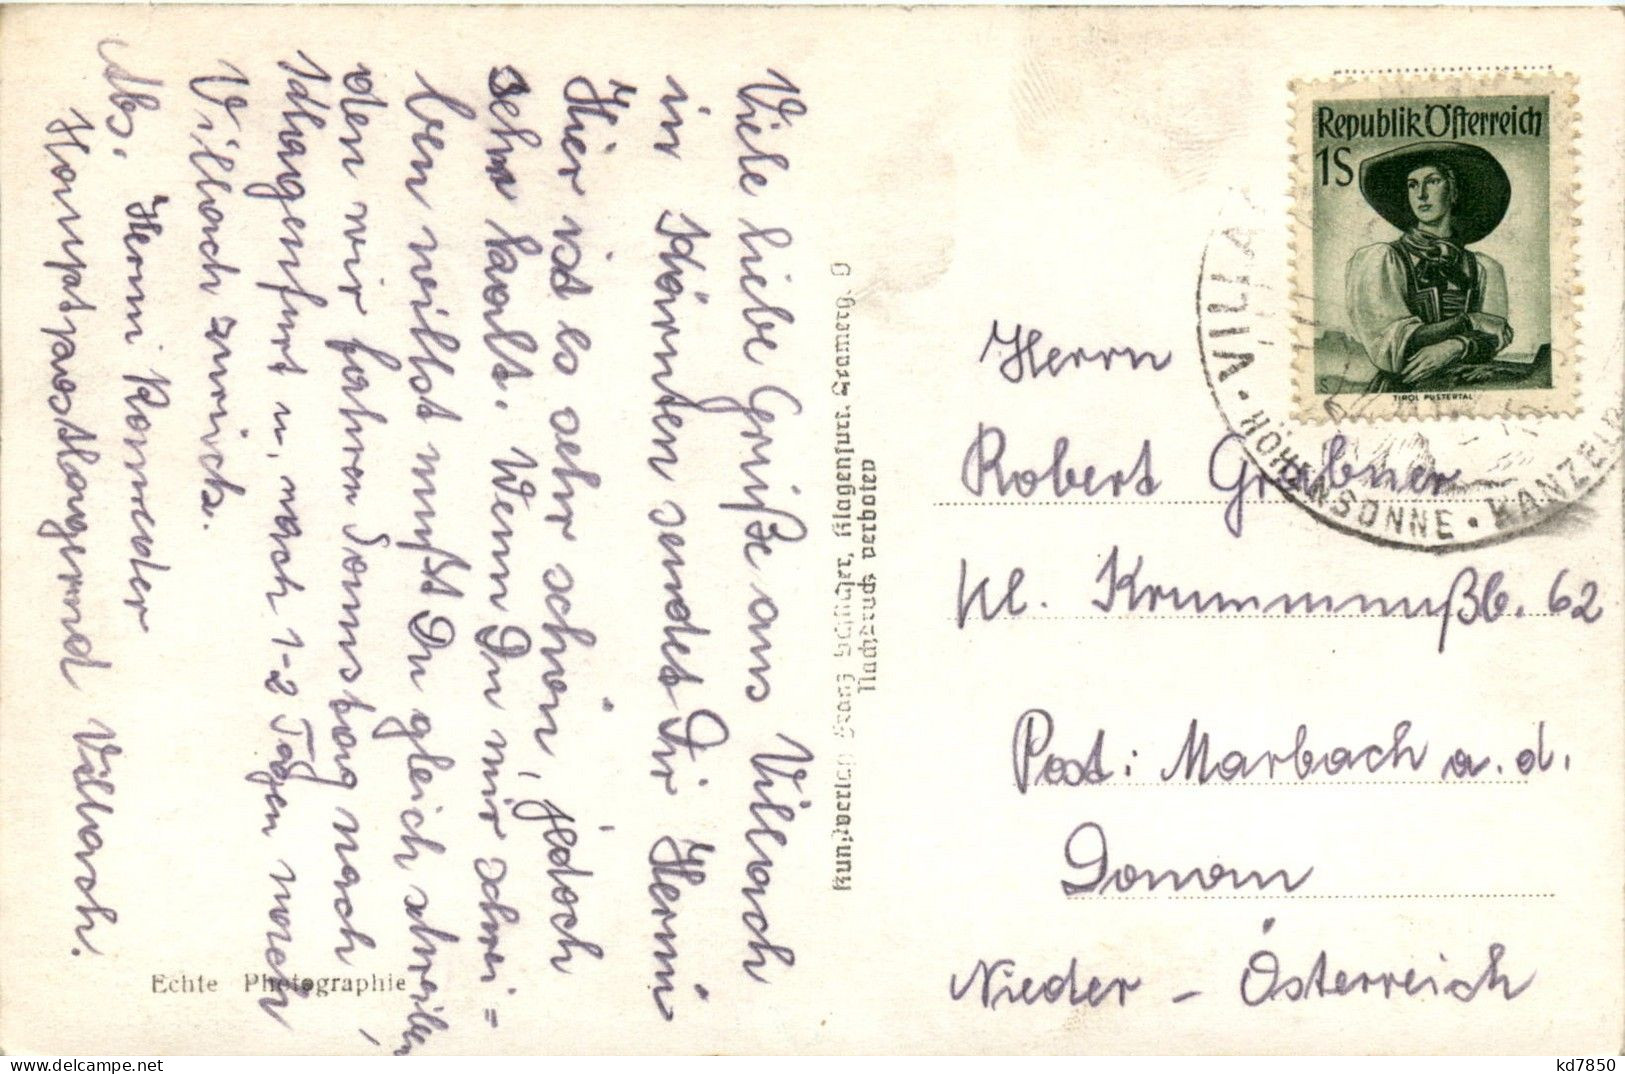 Viele liebe Grüße aus Villach
in Kärnten sendet Dir Hermi
Hier ist es sehr schön, jedoch
sehr kalt. Wenn Du mir schrei=
ben willst mußt Du gleich schreiben
den wir fahren Samstag nach
Klagenfurt u. nach 1-2 Tagen nach
Villach zurück.
Abs. Hermi
Hauptpostlagernd Villach.
Echte Photographie
Kunstverlag Franz Schilcher, Klagenfurt,
Nachdruck verboten
Republik Österreich
1S
TIROL PUSTERTAL
VILLA
HÖHENSONNE • KANZEL
Herrn
Robert Grubner
Kl. Krummnußb. 62
Post: Marbach a. d.
Donau
Nieder - Österreich
kd7850